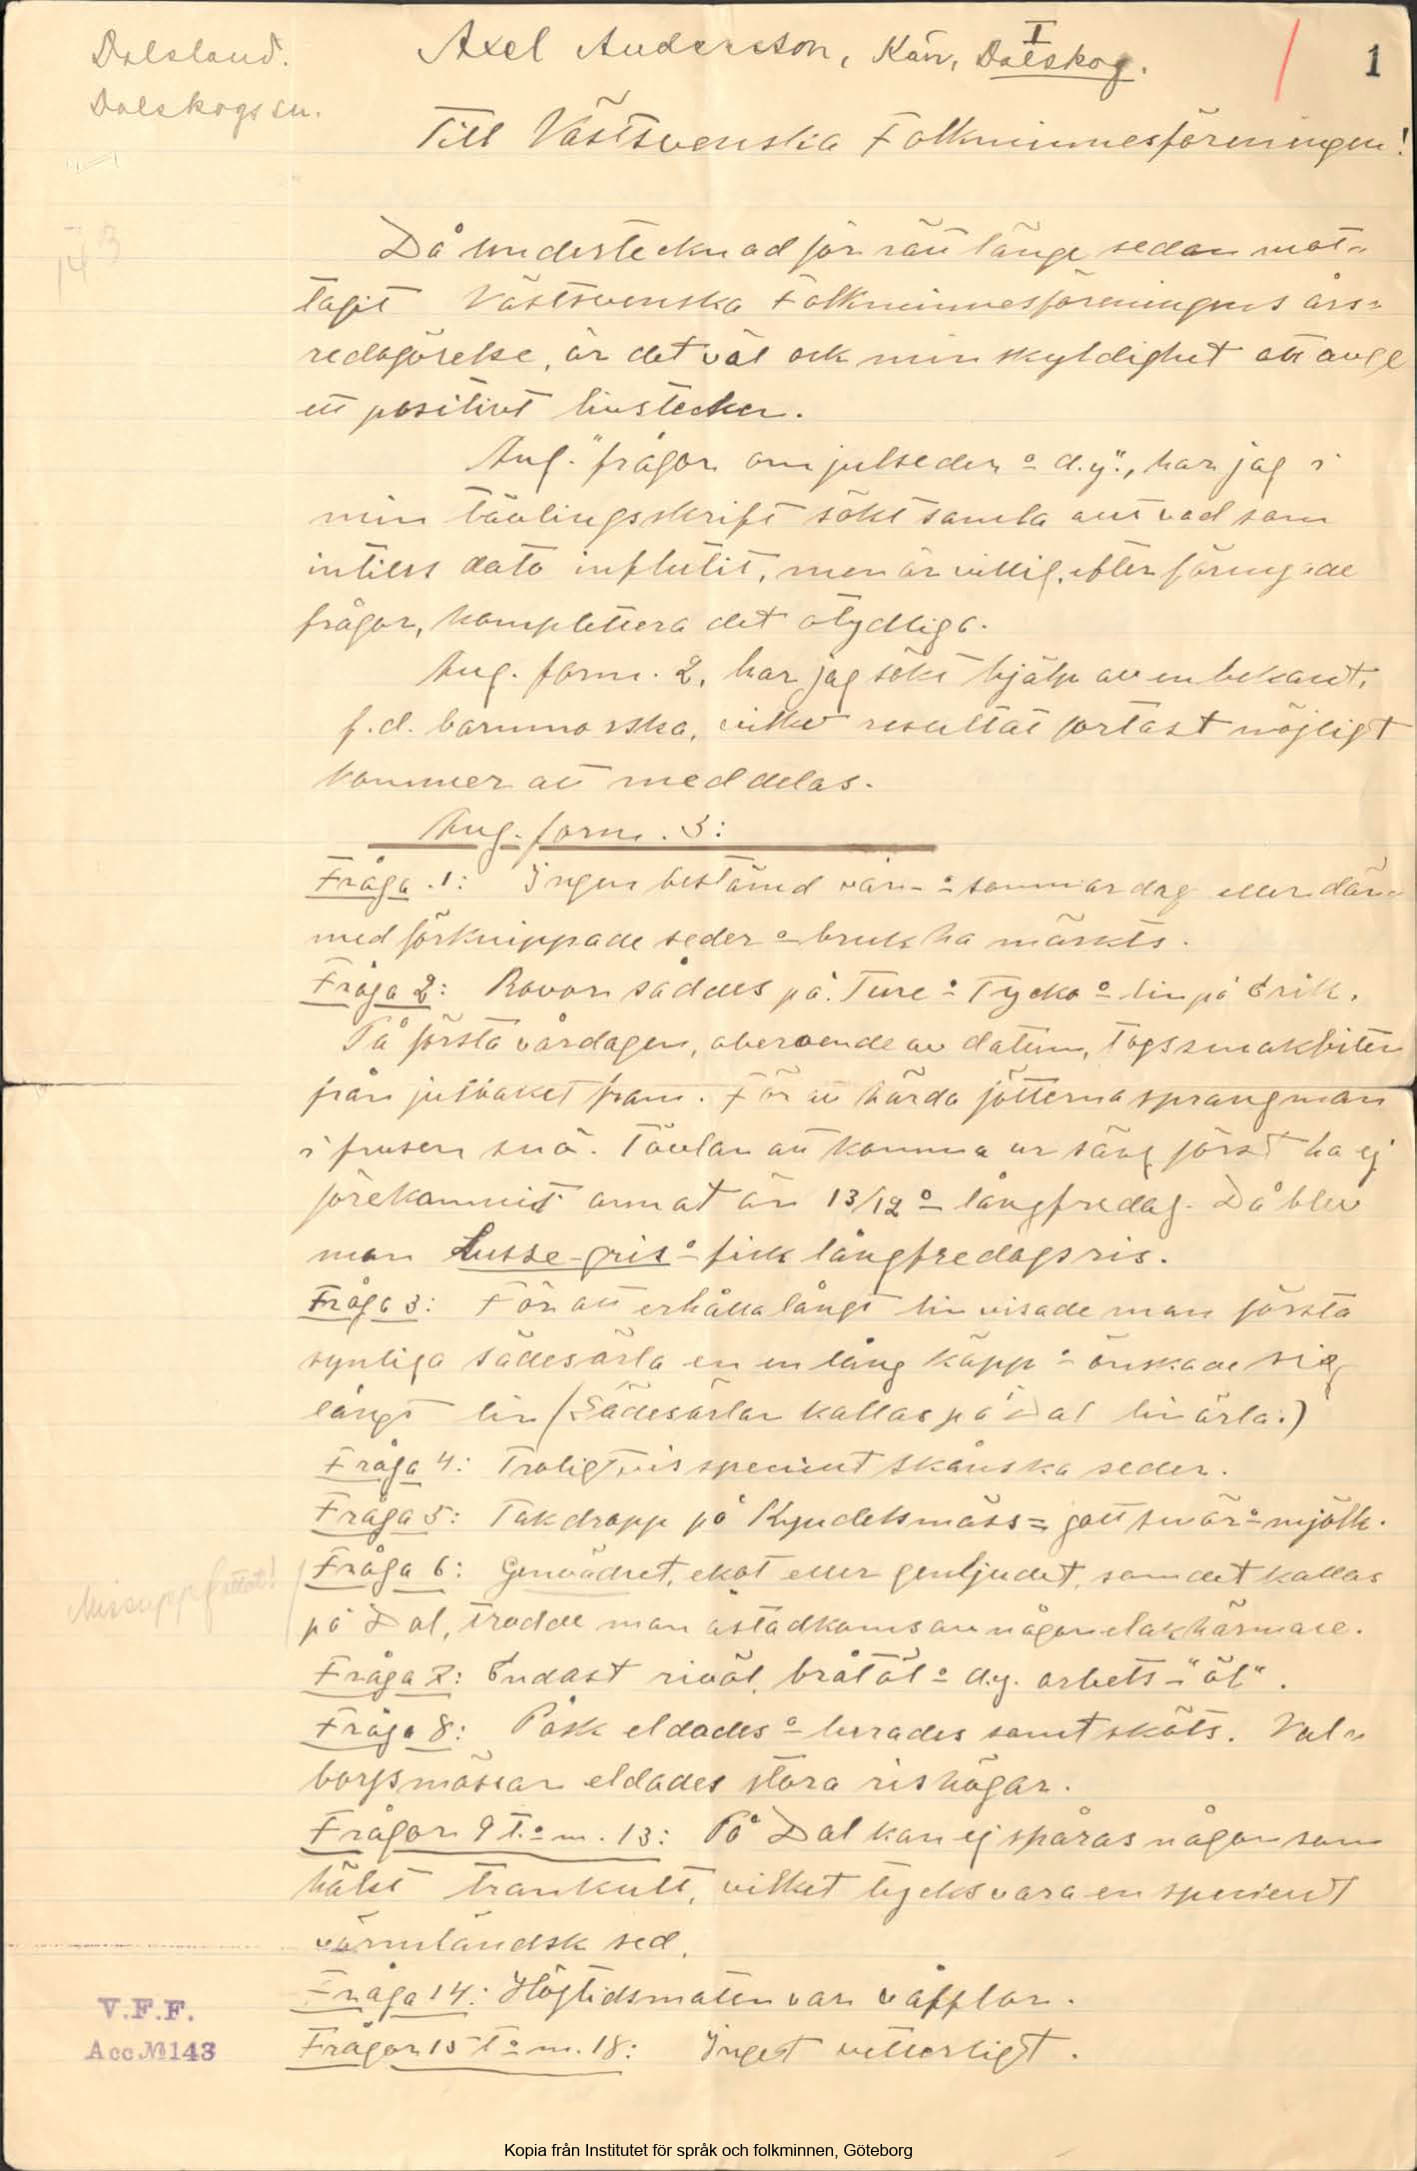 Dalsland.
Dalskogs sn.
Axel Andersson, Kärr, Dalskog.
I
1
Till Västsvenska Folkminnesföreningen!
143
Då undertecknad för rätt länge sedan mot-
tagit Västsvenska Folkminnesföreningens års-
redogörelse, är det väl ock min skyldighet att avge
ett positivt livstecken.
Ang. "frågor om julseder o d.y.", har jag i
min tävlingsskrift sökt samla allt vad som
intills dato influtit, men är villig, efter förnyade
frågor, komplettera det otydliga.
Ang. form. 2, har jag sökt hjälp av en bekant,
f.d. barnmorska, vilket resultat fortast möjligt
kommer att meddelas.
Ang. form. 3:
Fråga .1: Ingen bestämd vår- o sommardag eller där-
med förknippade seder o bruk ha märkts.
Fråga 2: Rovor såddes på Ture o Tycko o lin på Erik.
På första vårdagen, oberoende av datum, togs smakbiten
från julbaket fram. För att härda fötterna sprang man
i frusen snö. Tävlan att komma ur säng först ha ej
förekommit annat än 13/12 o långfredag. Då blev
man Lusse-gris o fick långfredagsris.
Fråga 3: För att erhålla långt lin visade man första
synliga sädesärla en en lång käpp o önskade sig
långt lin (Sädesärlan kallas på Dal linärla.)
Fråga 4: Troligtvis speciellt skånska seder.
Fråga 5: Takdropp på Kyndelsmäss = gott smör o mjölk.
Missuppfattat!
Fråga 6: Genvädret, ekot eller genljudet, som det kallas
på Dal, trodde man åstadkoms av någon elak härmare.
Fråga 7: Endast rivöl, bråtöl o d.y. arbets-"öl".
Fråga 8: Påsk eldades o lurades samt sköts. Val-
borgsmässan eldades stora rishögar.
Frågor 9 t. o m. 13: På Dal kan ej spåras någon som
hälst trankult, vilket tycks vara en speciellt
värmländsk sed.
Fråga 14: Högtidsmaten var våfflor.
Frågor 15 t o m. 18: Inget vetterligt.
V.F.F.
Acc.№143
Kopia från Institutet för språk och folkminnen, Göteborg